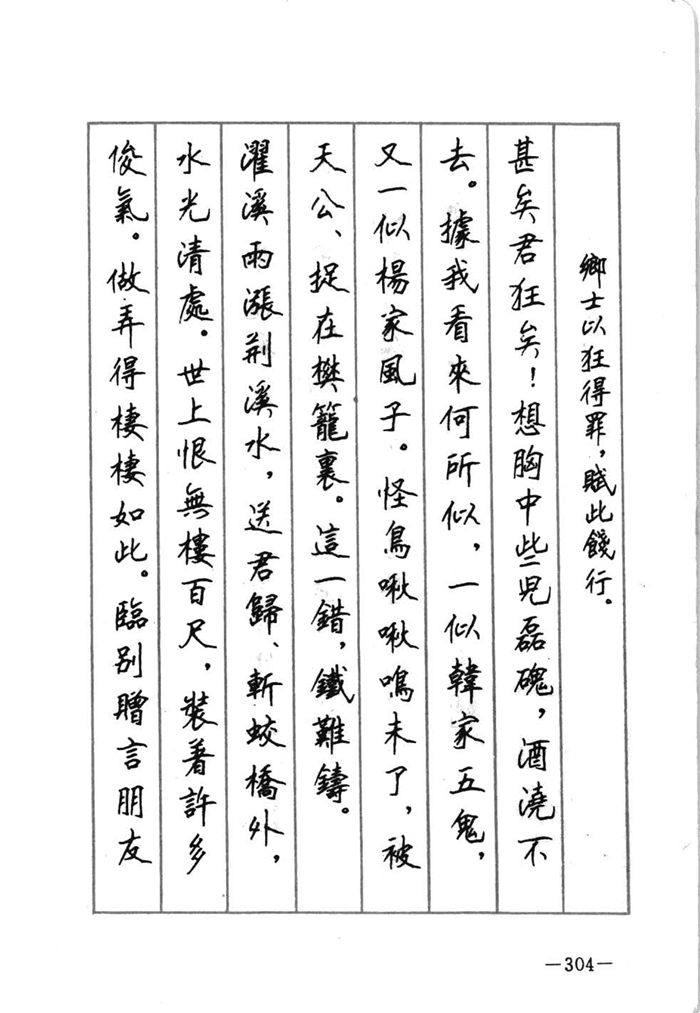 鄉士以狂得罪，賦此餞行。
甚矣君狂矣！想胸中些兒磊磈，酒澆不
去。據我看來何所似，一似韓家五鬼，
又一似楊家風子。怪鳥啾啾鳴未了，被
天公、捉在樊籠裏。這一錯，鐵難鑄。
濯溪雨漲荆溪水，送君歸、斬蛟橋外，
水光清處。世上恨無樓百尺，裝着許多
俊氣。做弄得棲棲如此。臨别贈言朋友
—304—